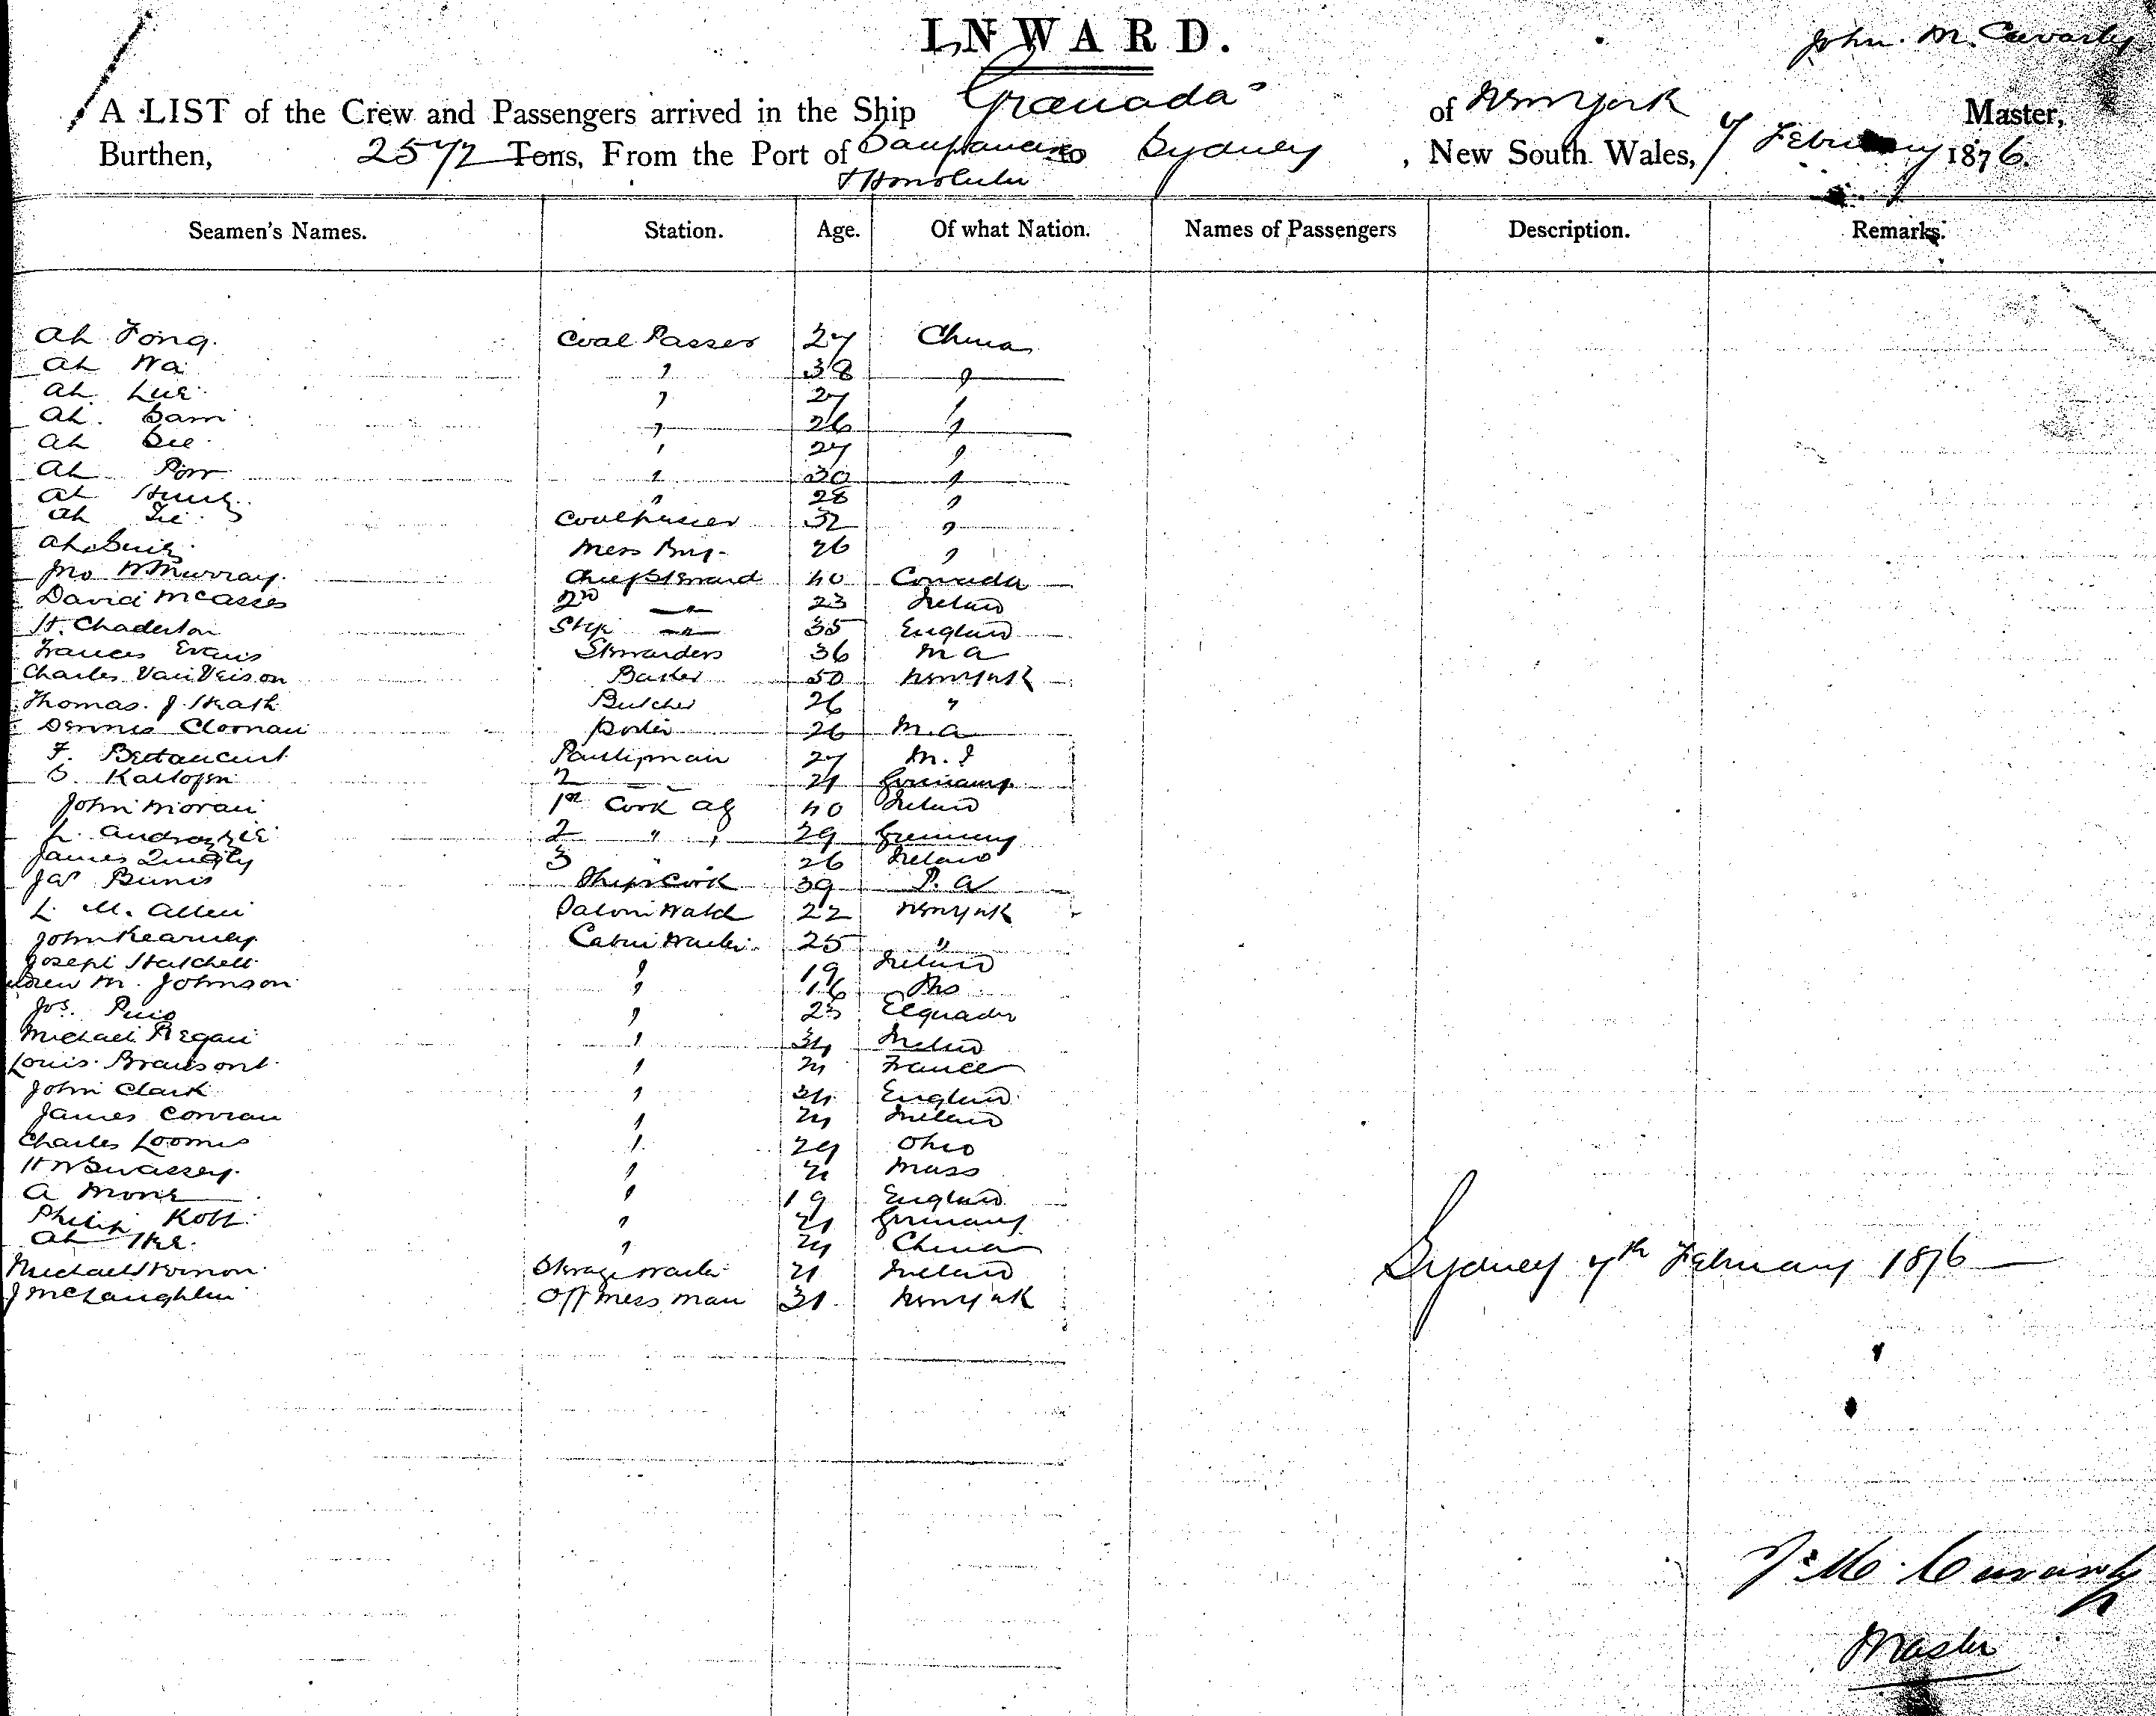 INWARD.
John. M. Cavarly
A LIST of the Crew and Passengers arrived in the Ship Granada of New York Master,
Burthen, 2572 Tons, From the Port of Sanfrancisco to Sydney, New South Wales, 7 February 1876.
& Honolulu
Seamen's Names. Station. Age. Of what Nation. Names of Passengers Description. Remarks.
Ah Fong. Coal Passer 27 China
Ah Wa " 38 "
Ah Lue " 27 "
Ah. Sam " 26 "
Ah See " 27 "
Ah Pow " 30 "
Ah Hung " 28 "
Ah Coalpasser 32 "
Ah Mess Boy 26 "
Jno W Murray. Chief Steward 40 Canada
David 2nd " 23 Ireland
H. Chaderton " 35 England
Frances Evans Stewardess 36 M a
Charles Baker 50 New York
Thomas. J. Heath Butcher 26 "
Dennis Cloonan porter 26 M. a
F. Betancurt Pantryman 27
2 21 Germany
John Moran 1st Cook 40 Ireland
2 " " 29 Germany
James 3 " 26 Ireland
Jas Ships Cook 39 P. a
L. M. Allen Saloon Watch 22 New York
John Kearney Cabin Waiter 25 "
Joseph Hatchell " 19 Ireland
M. Johnson " 16
Jos. " 23 Equador
Michael Regan " 34 Ireland
Louis " 21 France
John Clark " England
James Conran " Ireland
Charles Loomis " 29 Ohio
H W Swassey. " 21 Mass
A " 19 England
Philip " 21 Germany
Ah " China
Michael Vernon Sterage waiter 21 Ireland
J McLaughlin Off mess man 31. New York
Sydney 7th February 1876
J. M. Cavarly
Master